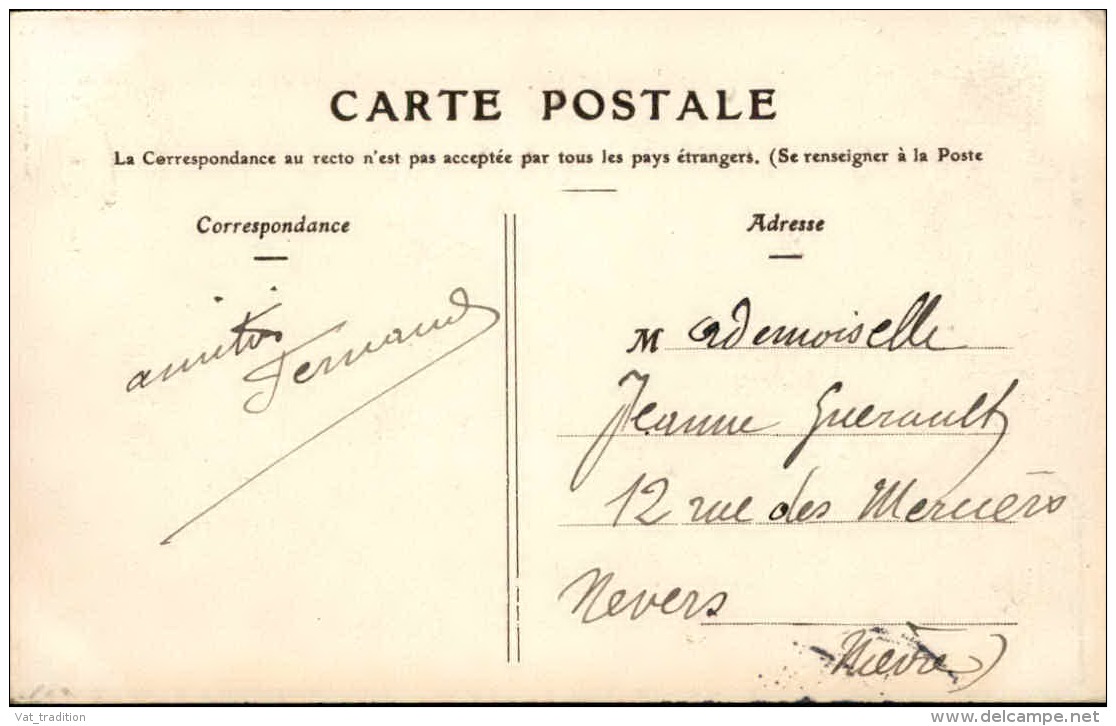 CARTE POSTALE
La Correspondance au recto n'est pas acceptée par tous les pays étrangers. (Se renseigner à la Poste
Correspondance
amitiés
Fernand
Adresse
Mademoiselle
Jeanne Guerault
12 rue des Merciers
Nevers
Nièvre)
Vat_tradition
delcampe.net